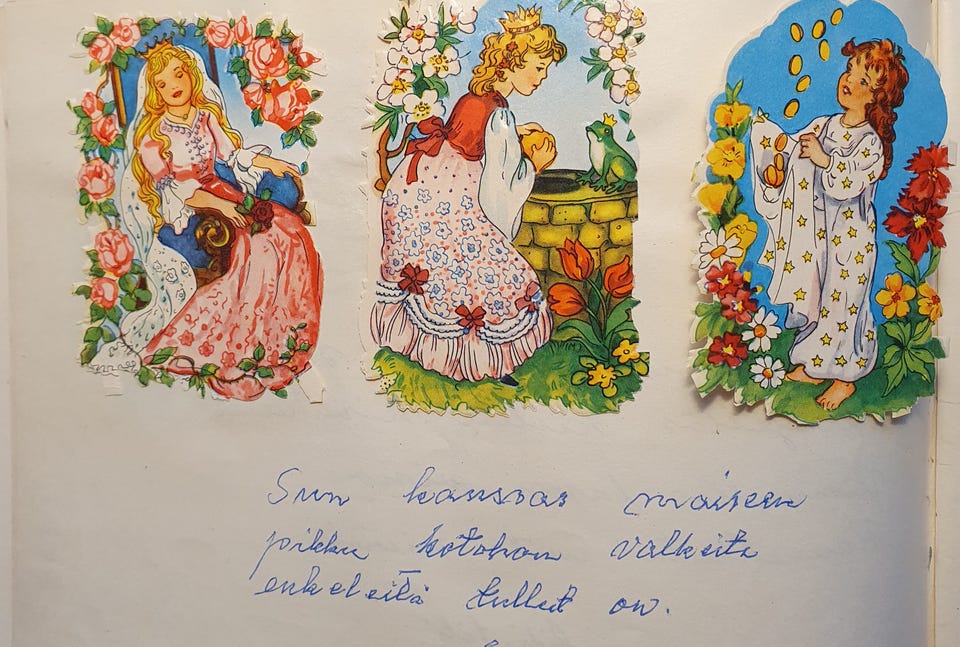 Sun kanssas maiseen
pikku kotohon valkeita
enkeleitä tullut on.